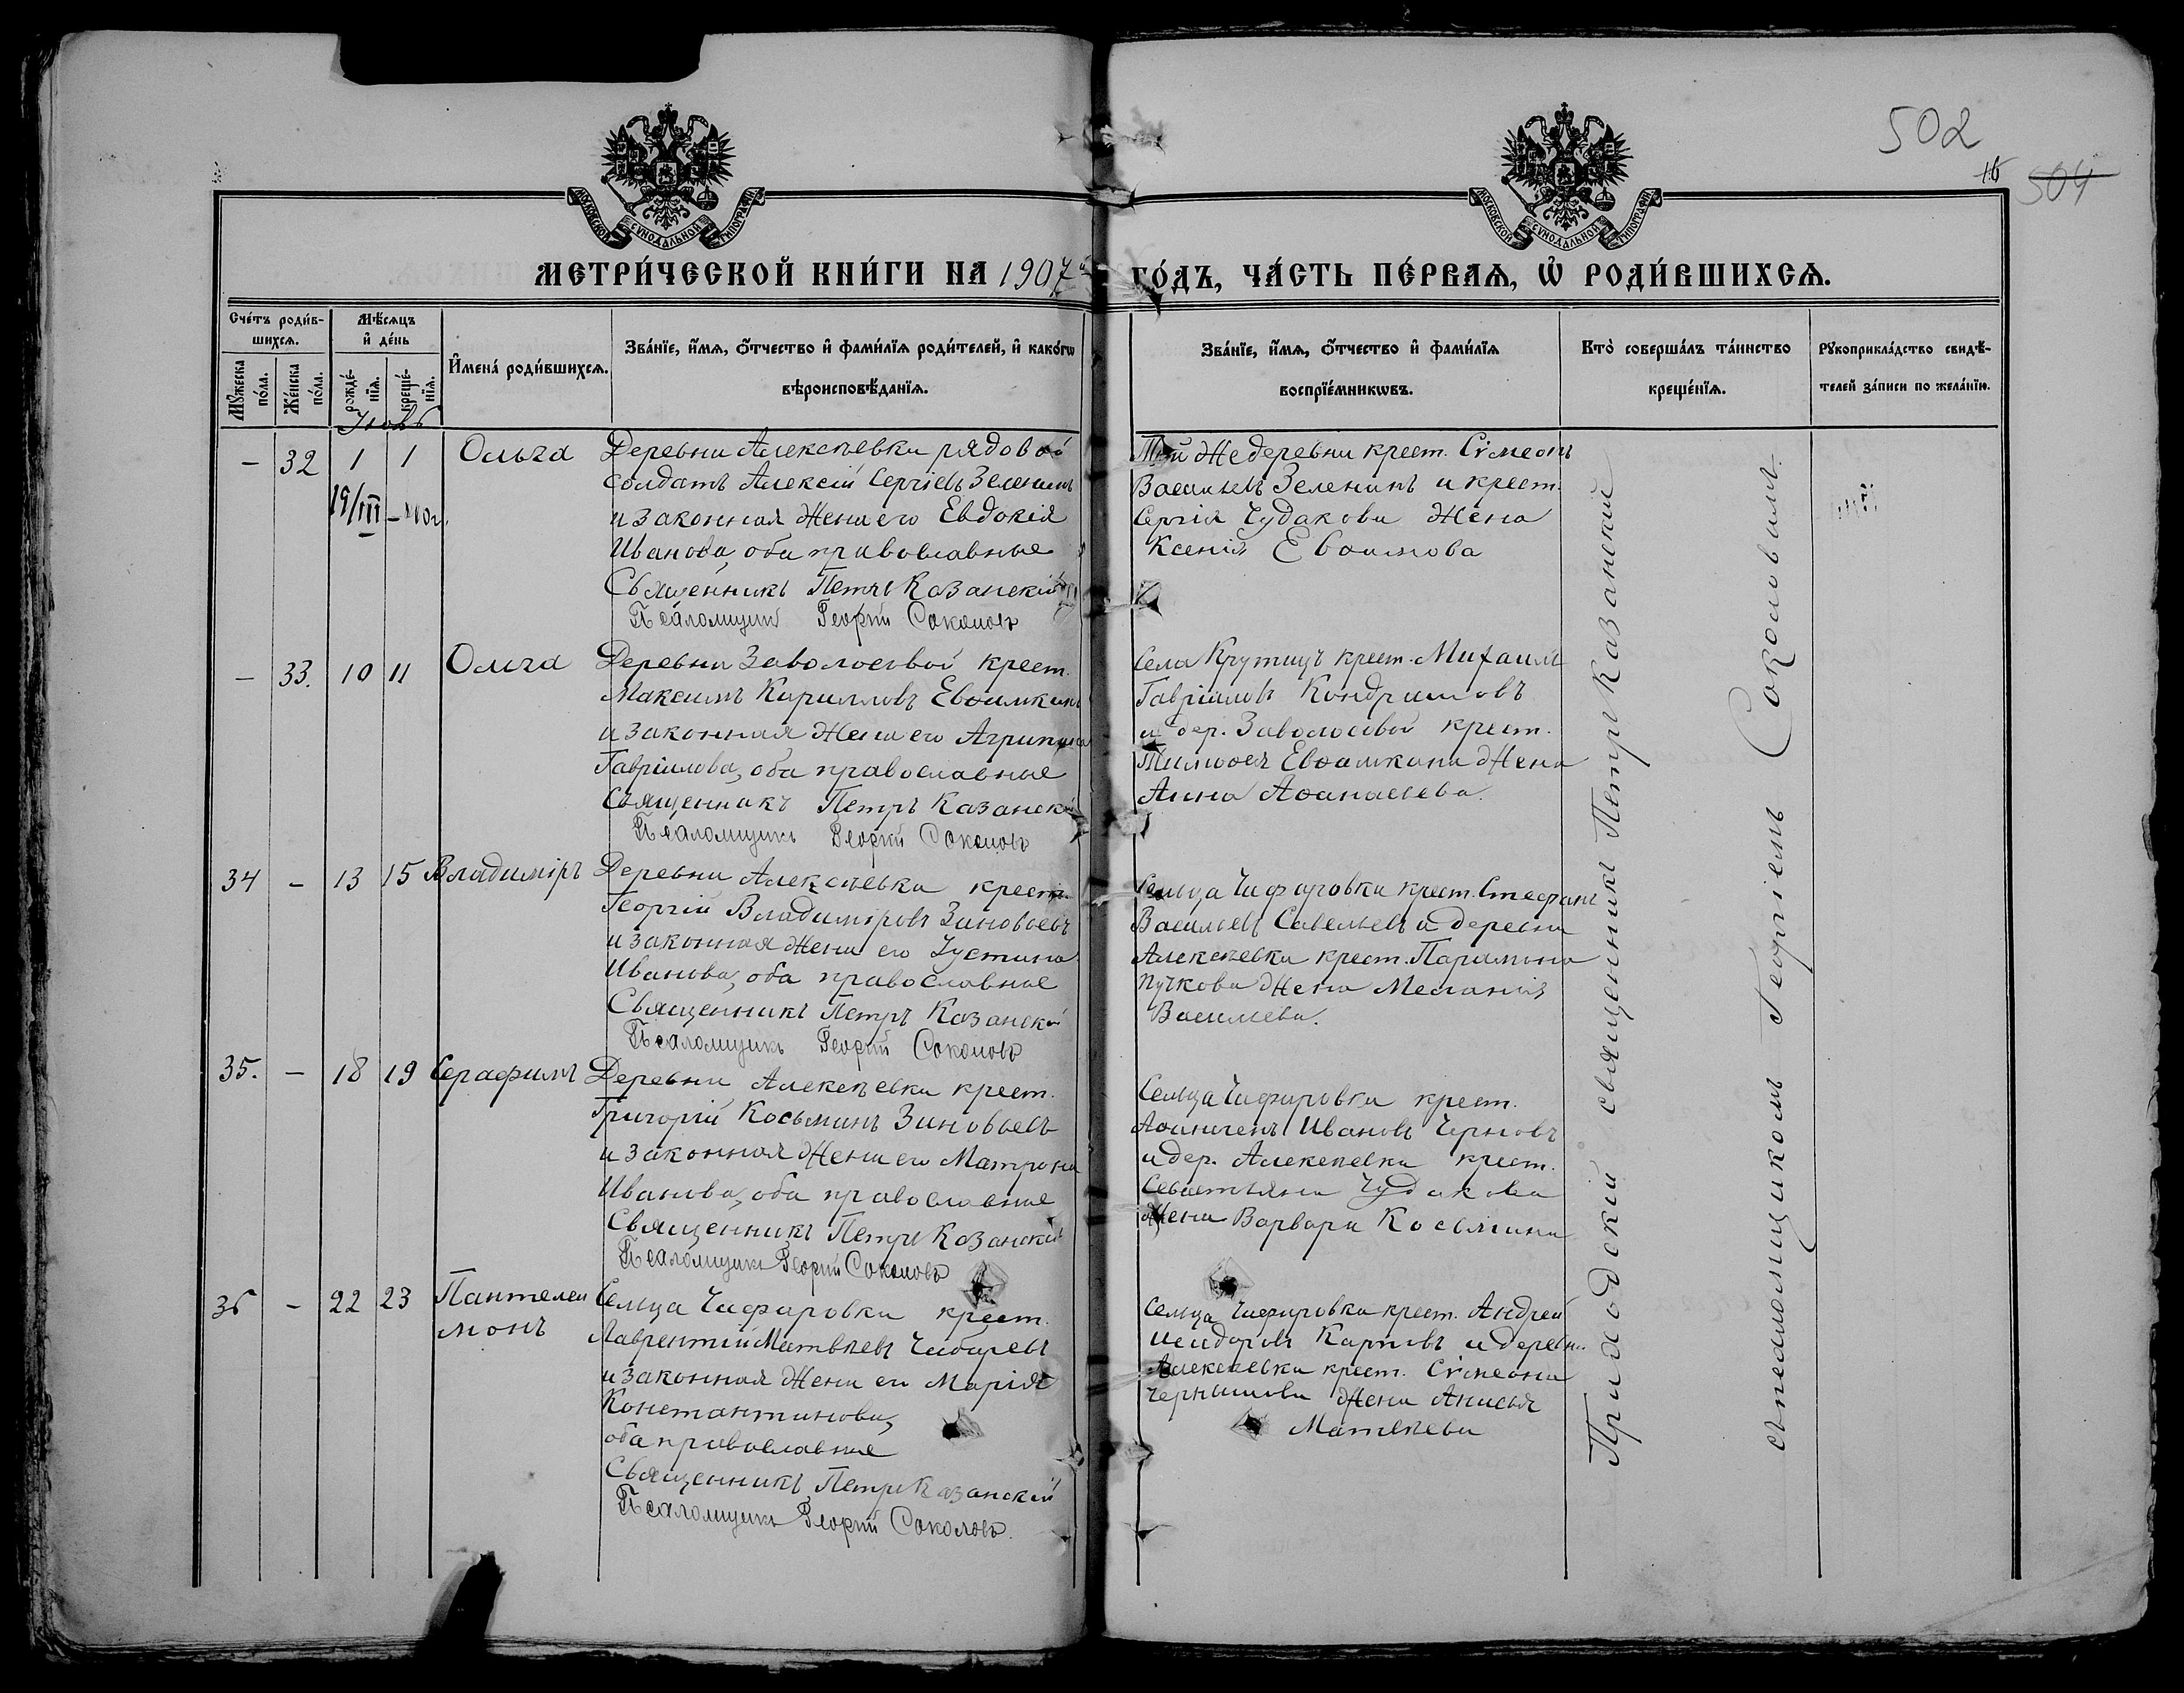 502
16 504
МОСКОВСКОЙ СѴНОДАЛЬНОЙ ТИПОГРАФІИ
МОСКОВСКОЙ СѴНОДАЛЬНОЙ ТИПОГРАФІИ
МЕТРИ́ЧЕСКОЙ КНИ́ГИ НА 1907й
ГО́ДЪ, ЧА́СТЬ ПЕ́РВАѦ, Ѡ҆ РОДИ́ВШИХСѦ.
Сче́тъ роди́в-
шихсѧ.
Мꙋ́жеска
по́ла.
Же́нска
по́ла.
Мѣ́сѧцъ
и҆ де́нь
рожде́-
нїѧ.
креще́-
нїѧ.
И҆мена̀ роди́вшихсѧ.
Зва́нїе, и҆́мѧ, ѻ҆́тчество и҆ фами́лїѧ роди́телей, и҆ како́гѡ
вѣроисповѣ́данїѧ.
Зва́нїе, и҆́мѧ, ѻ҆́тчество и҆ фами́лїѧ
воспрїе́мникѡвъ.
Кто̀ соверша́лъ та́инство
креще́нїѧ.
Рꙋкоприкла́дство свидѣ́-
телей за́писи по жела́нїю.
Іюль
– 32 1 1 Ольга
19/III –
Деревни Алексѣевки рядовой
солдатъ Алексій Сергіевъ Зеленинъ
и законная жена его Евдокія
Иванова, оба православные
Священникъ Петръ Казанскій
Псаломщикъ Георгій Соколовъ
Той же деревни крест. Сѵмеонъ
Васильевъ Зеленинъ и крест.
Сергія Чудакова жена
Ксенія Евѳимова
– 33. 10 11 Ольга
Деревни Заволосовой крест.
Максимъ Кирилловъ Евѳимкинъ
и законная жена его Агрипина
Гавріилова, оба православные
Священникъ Петръ Казанскій
Псаломщикъ Георгій Соколовъ
Села Крутицъ крест. Михаилъ
Гавріиловъ Кондрашовъ
и дер. Заволосовой крест.
Тимоѳея Евѳимкина жена
Анна Аѳанасьева.
34 – 13 15 Владиміръ
Деревни Алексѣевки крест.
Георгій Владиміровъ Зиновьевъ
и законная жена его Іустина
Иванова, оба православные
Священникъ Петръ Казанскій
Псаломщикъ Георгій Соколовъ
Сельца Чифировки крест. Стефанъ
Васильевъ Савельевъ и деревни
Алексѣевки крест. Парамона
Пучкова жена Меланія
Васильева.
35. – 18 19 Серафимъ
Деревни Алексѣевки крест.
Григорій Косьминъ Зиновьевъ
и законная жена его Матрона
Иванова, оба православные
Священникъ Петръ Казанскій
Псаломщикъ Георгій Соколовъ
Сельца Чифировки крест.
Ивановъ Черновъ
и дер. Алексѣевки крест.
Севастьяна Чудакова
жена Варвара Косьмина
36 – 22 23 Пантелеи
монъ
Сельца Чифировки крест.
Лаврентій Матвѣевъ
и законная жена его Марія
Константинова,
оба православные
Священникъ Петръ Казанскій
Псаломщикъ Георгій Соколовъ.
Сельца Чифировки крест. Андрей
Исидоровъ Карповъ и деревни
Алексѣевки крест. Сѵмеона
Чернышова жена Анисья
Матвѣева
Приходскій священникъ Петръ Казанскій
съ псаломщикомъ Георгіемъ Соколовымъ.